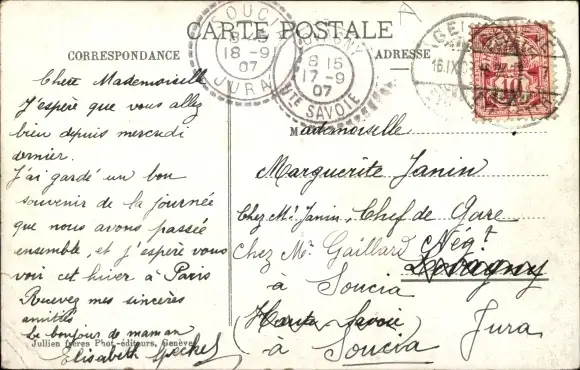 CARTE POSTALE
CORRESPONDANCE
ADRESSE
SOUCI
18-9
07
JURA
8 15
17-9
07
HTE SAVOIE
16.IX.07
10
Chère Mademoiselle
J'espère que vous allez
bien depuis mercredi
dernier.
J'ai gardé un bon
souvenir de la journée
que nous avons passée
ensemble, et j'espère vous
voir cet hiver à Paris
Recevez mes sincères
amitiés
Le bonjour de maman
Elisabeth
Jullien frères Phot.-éditeurs, Genève
Mademoiselle
Marguerite Janin
Chez Mr Janin, Chef de Gare
Chez Mr Gaillard Négt
Lovagny
à Soucia
(Haute Savoie)
Jura
à Soucia